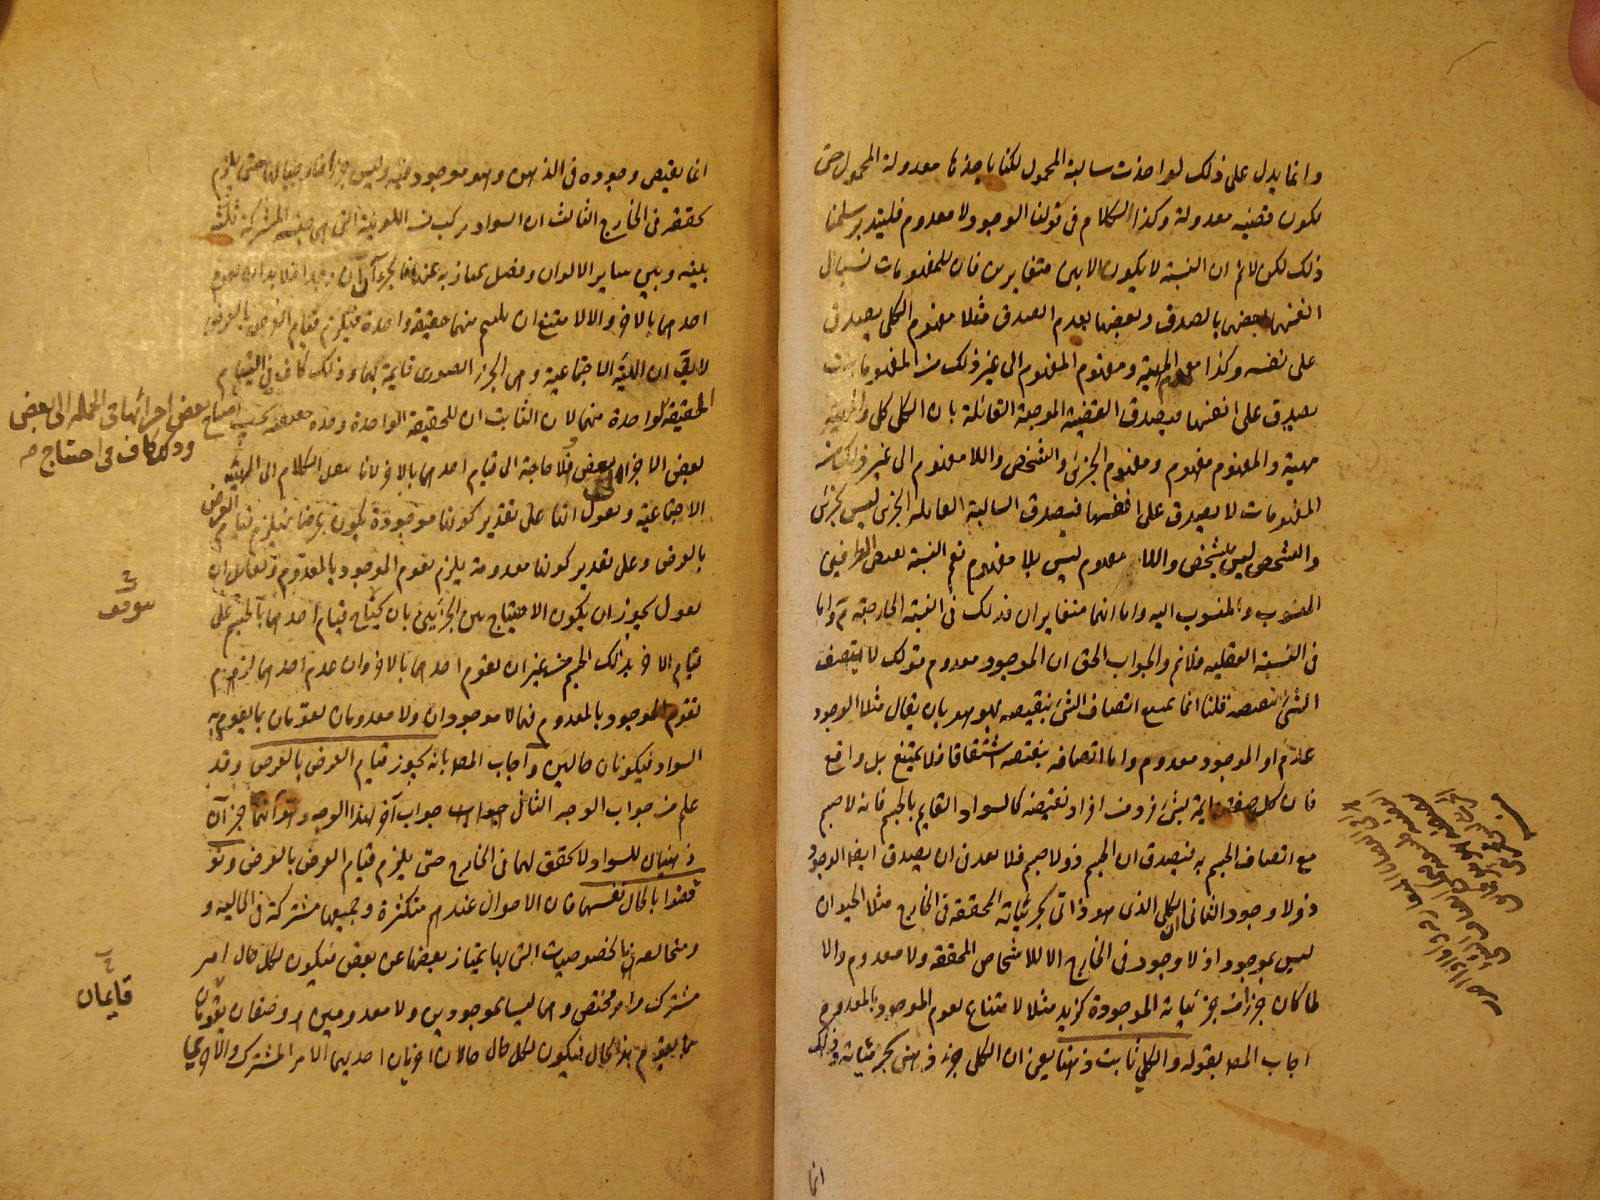 وانما يدل على ذلك لو اخذت سالبة المحمول لكنا ناخذها معدولة المحمول حتى
يكون قضيه معدولة وكذا الكلام فى قولنا الوجود لا معدوم فليتدبر سلمنا
ذلك لكن لانم ان النسبة لا يكون الا بين متغايرين فان للمفهومات نسبا الى
انفسها بعضها بالصدق وبعضها بعدم الصدق مثلا مفهوم الكلى يصدق
على نفسه وكذا مفهوم المهية ومفهوم المفهوم الى غير ذلك من المفهومات
يصدق على انفسها فيصدق القضية الموجبة القائلة بان الكلى كلى والمهية
مهية والمفهوم مفهوم ومفهوم الجزئى والشخص واللا مفهوم الى غير ذلك من
المفهومات لا يصدق على انفسها فيصدق السالبة القائله الجزئى ليس بجزئى
والشخص ليس بشخص واللا مفهوم ليس بلا مفهوم نعم النسبة تقتضى الطرفين
المنسوب والمنسوب اليه واما انهما متغايران فذلك فى النسبة الخارجية تم واما
فى النسبة العقليه فلانم والجواب الحق ان الموجود معدوم قولك لا يتصف
الشئ بنقيضه قلنا انما يمتنع اتصاف الشئ بنقيضه بهو هو بان يقال مثلا الوجود
عدم او الموجود معدوم واما اتصافه بنقيضه اشتقاقا فلا يمتنع بل واقع
فان كل صفة قايمة بشئ فرد من افراد نقيضه كالسواد القايم بالجسم فانه لا جسم
مع اتصاف الجسم به فيصدق ان الجسم ذو لا جسم فلا بعد فى ان يصدق ايضا الوجود
ذو لا وجود الثانى ان الكلى الذى هو ذاتى لجزئياته المحققة فى الخارج مثلا الحيوان
ليس بموجود اذ لا وجود فى الخارج الا للاشخاص المحققة ولا معدوم والا
لما كان جزا من جزئياته الموجودة كزيد مثلا لامتناع تقوم الموجود بالمعدوم
اجاب المص بقوله والكلي ثابت ذهنا يعنى ان الكلى جزء ذهنى لجزئياته وذلك
انما
انما يقتضى وجوده فى الذهن وهو موجود فيه وليس جزا خارجيا لها حتى يلزم
تحققه فى الخارج الثالث ان السواد مركب من اللونية التى هى جنسه المشتركة
بينه وبين ساير الالوان وفصل يمتاز به عنها فالجزءان ان وجدا فلا بد ان يقوم
احدهما بالاخر والا لامتنع ان يلتئم منهما حقيقة واحدة فيلزم قيام العرض بالعرض
لا يقال ان الهيئة الاجتماعية وهى الجزء الصورى قايمة بهما وذلك كاف فى التيام
الحقيقة الواحدة منهما لان الثابت ان للحقيقة الواحدة وحدة حقيقة يجب احتياج
بعض الاجزاء الى بعض فلا حاجة الى قيام احدهما بالاخر لانا ننقل الكلام الى الهيئة
الاجتماعية ونقول انها على تقدير كونها موجودة يكون عرضا فيلزم قيام العرض
بالعرض وعلى تقدير كونها معدومة يلزم تقوم الموجود بالمعدوم ولقائل ان
يقول يجوز ان يكون الاحتياج بين الجزئين بان يحتاج قيام احدهما بالجسم على
قيام الاخر بذلك الجسم من غير ان يقوم احدهما بالاخر وان عدم احدهما لزم
تقوم الموجود بالمعدوم فهما لا موجودان ولا معدومان يقومان بما يقوم به
السواد فيكونان حالين واجاب المص بانه يجوز قيام العرض بالعرض وقد
علم من جواب الوجه الثانى جواب آخر لهذا الوجه وهو انهما جزآن
ذهنيان للسواد لا تحقق لهما فى الخارج حتى يلزم قيام العرض بالعرض ونو
قضوا بالحال نفسها فان الاحوال عندهم متكثرة وجميعها مشتركة فى الحالية و
ومتخالفة بالخصوصيات التى بها يمتاز بعضها عن بعض فيكون لكل حال امر
مشترك وامر مختص وهما ليسا بموجودين ولا معدومين وصفتان يقومان
بما يقوم به الحال فيكون لكل حال حالان اخريان احديهما الامر المشترك والاخرى
بعض اجزائها فى الجملة الى البعض
وذلك كاف فى احتياج
قايمان